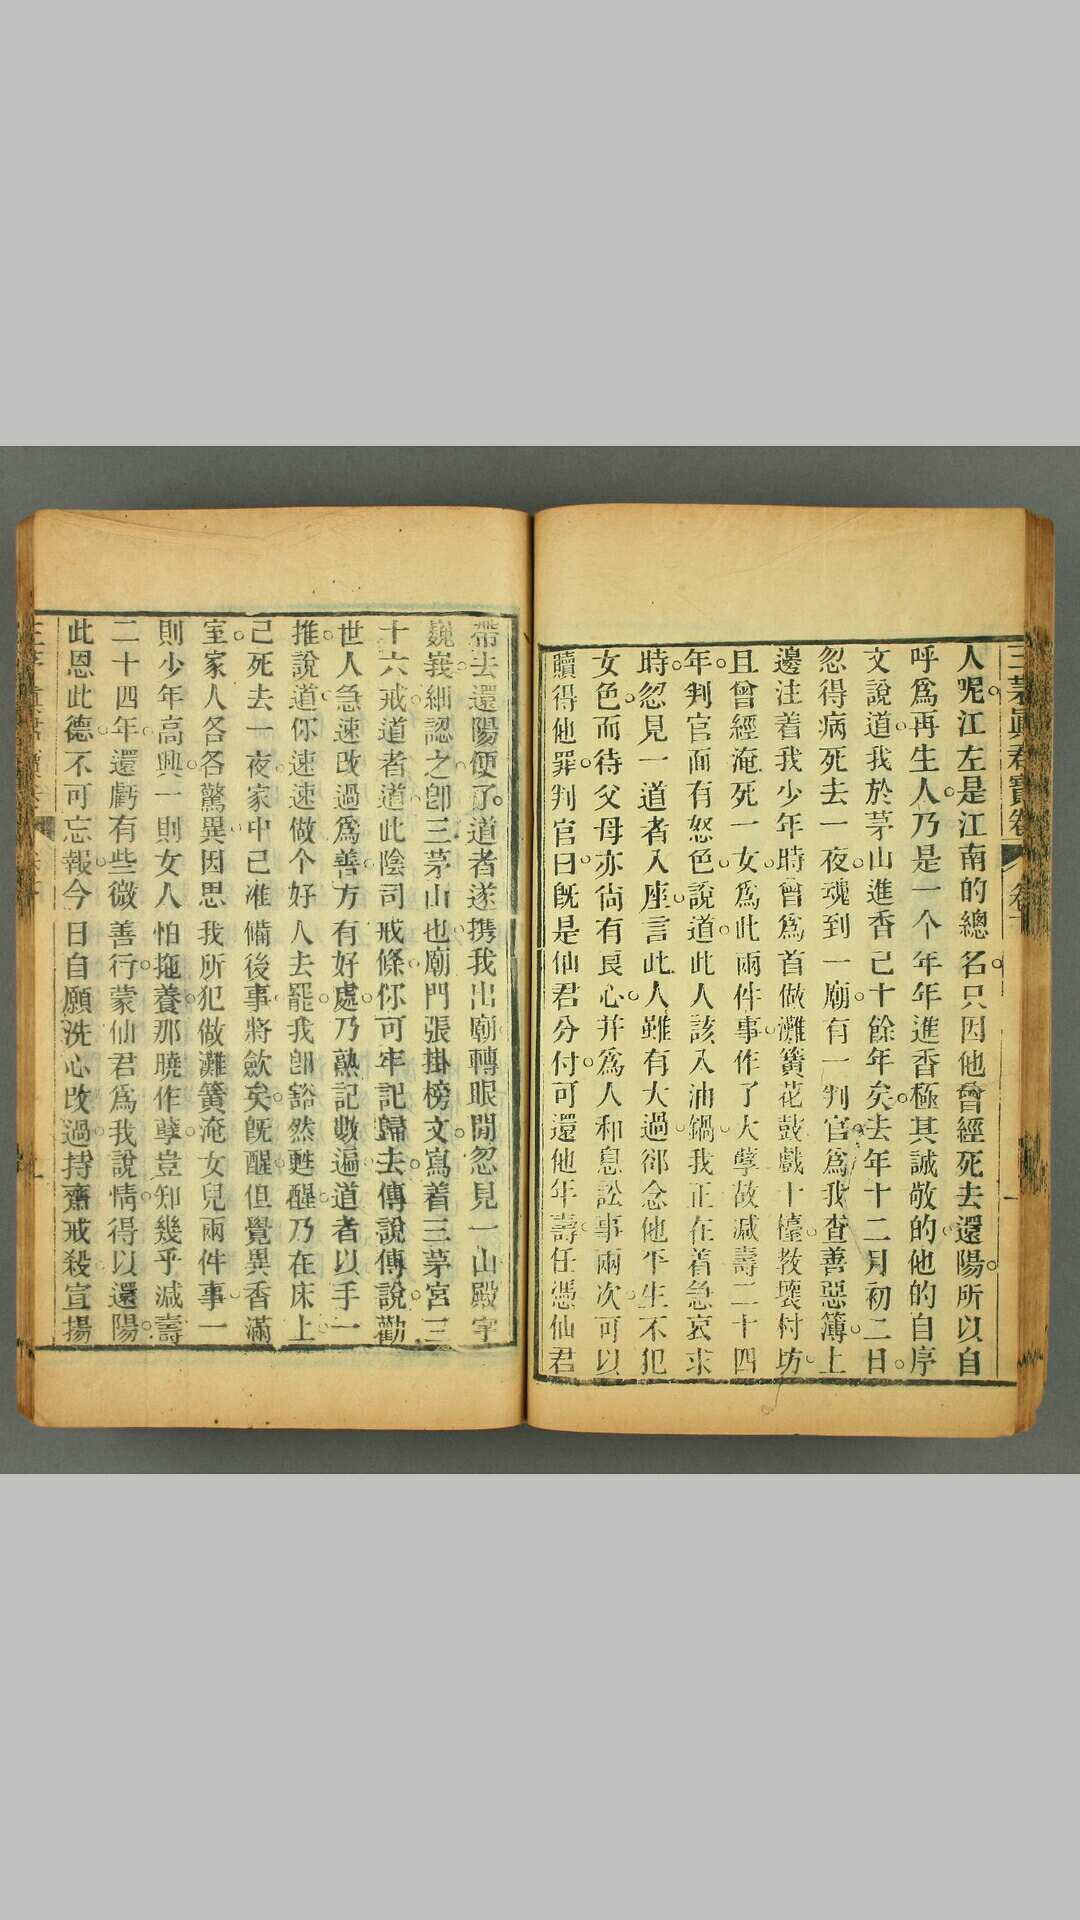 三茅眞君寶卷 卷下
人呢江左是江南的總名只因他曾經死去還陽所以自
呼爲再生人乃是一个年年進香極其誠敬的他的自序
文說道我於茅山進香己十餘年矣去年十二月初二日
忽得病死去一夜魂到一廟有一判官爲我查善惡簿上
邊注着我少年時曾爲首做灘簧花鼓戲十檯教壞村坊
且曾經淹死一女爲此兩件事作了大孽故減壽二十四
年判官面有怒色說道此人該入油鍋我正在着急哀求
時忽見一道者入座言此人雖有大過郤念他平生不犯
女色而待父母亦尙有良心并爲人和息訟事兩次可以
贖得他罪判官曰旣是仙君分付可還他年壽任憑仙君
帶去還陽便了道者遂携我出廟轉眼閒忽見一山殿宇
巍峩細認之卽三茅山也廟門張掛榜文寫着三茅宮三
十六戒道者道此陰司戒條你可牢記歸去傳說傳說勸
世人急速改過爲善方有好處乃熟記數遍道者以手一
推說道你速速做个好人去罷我卽豁然甦醒乃在床上
己死去一夜家中己准備後事將歛矣旣醒但覺異香滿
室家人各各驚異因思我所犯做灘簧淹女兒兩件事一
則少年高興一則女人怕拖養那曉作孽豈知幾乎減壽
二十四年還虧有些微善行蒙仙君爲我說情得以還陽
此恩此德不可忘報今日自願洗心改過持齋戒殺宣揚